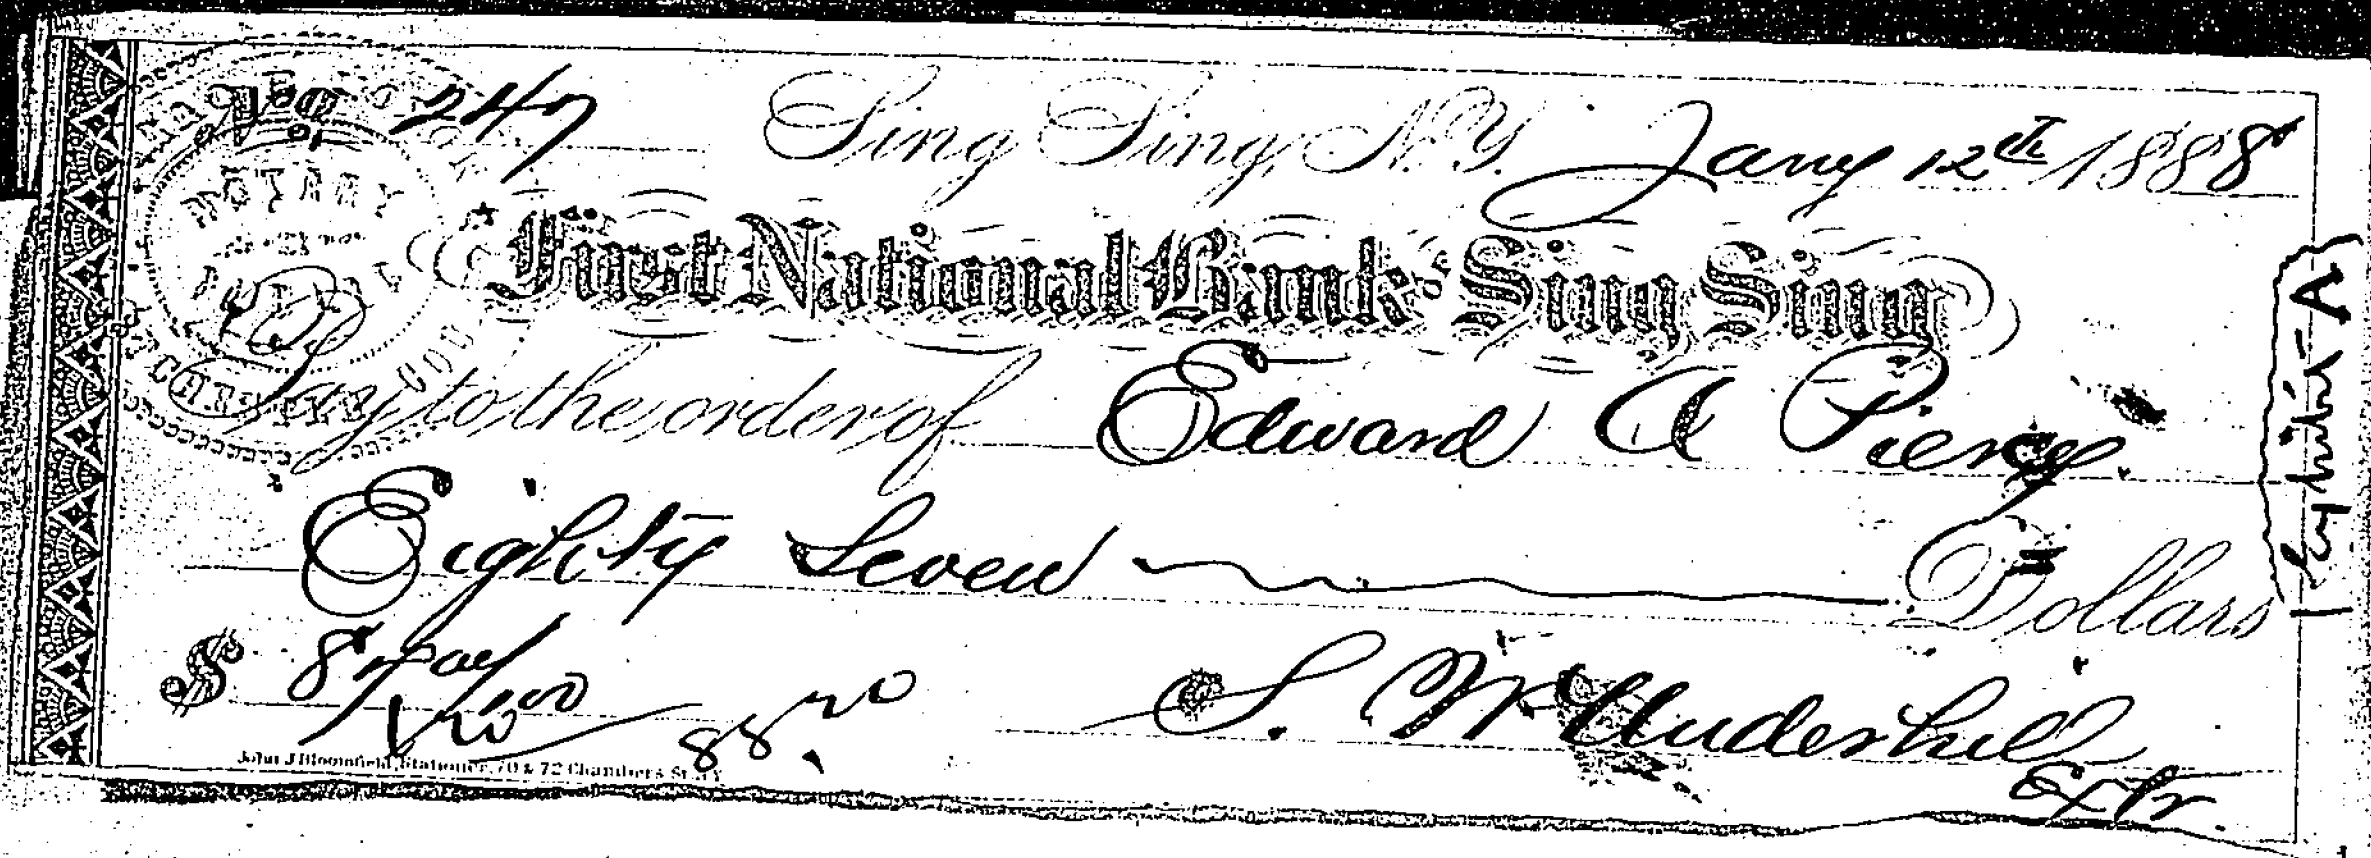 No 247 Sing Sing, N.Y. Jany 12th 1888
First National Bank of Sing Sing
Pay to the order of Edward A Piercy
Eighty Seven Dollars
$ 87
1 20
88.20
S. W Underhill
Extr.
John J Bloomfield, Stationer, 70 & 72 Chambers St. N.Y.
NOTARY
Exhibit A